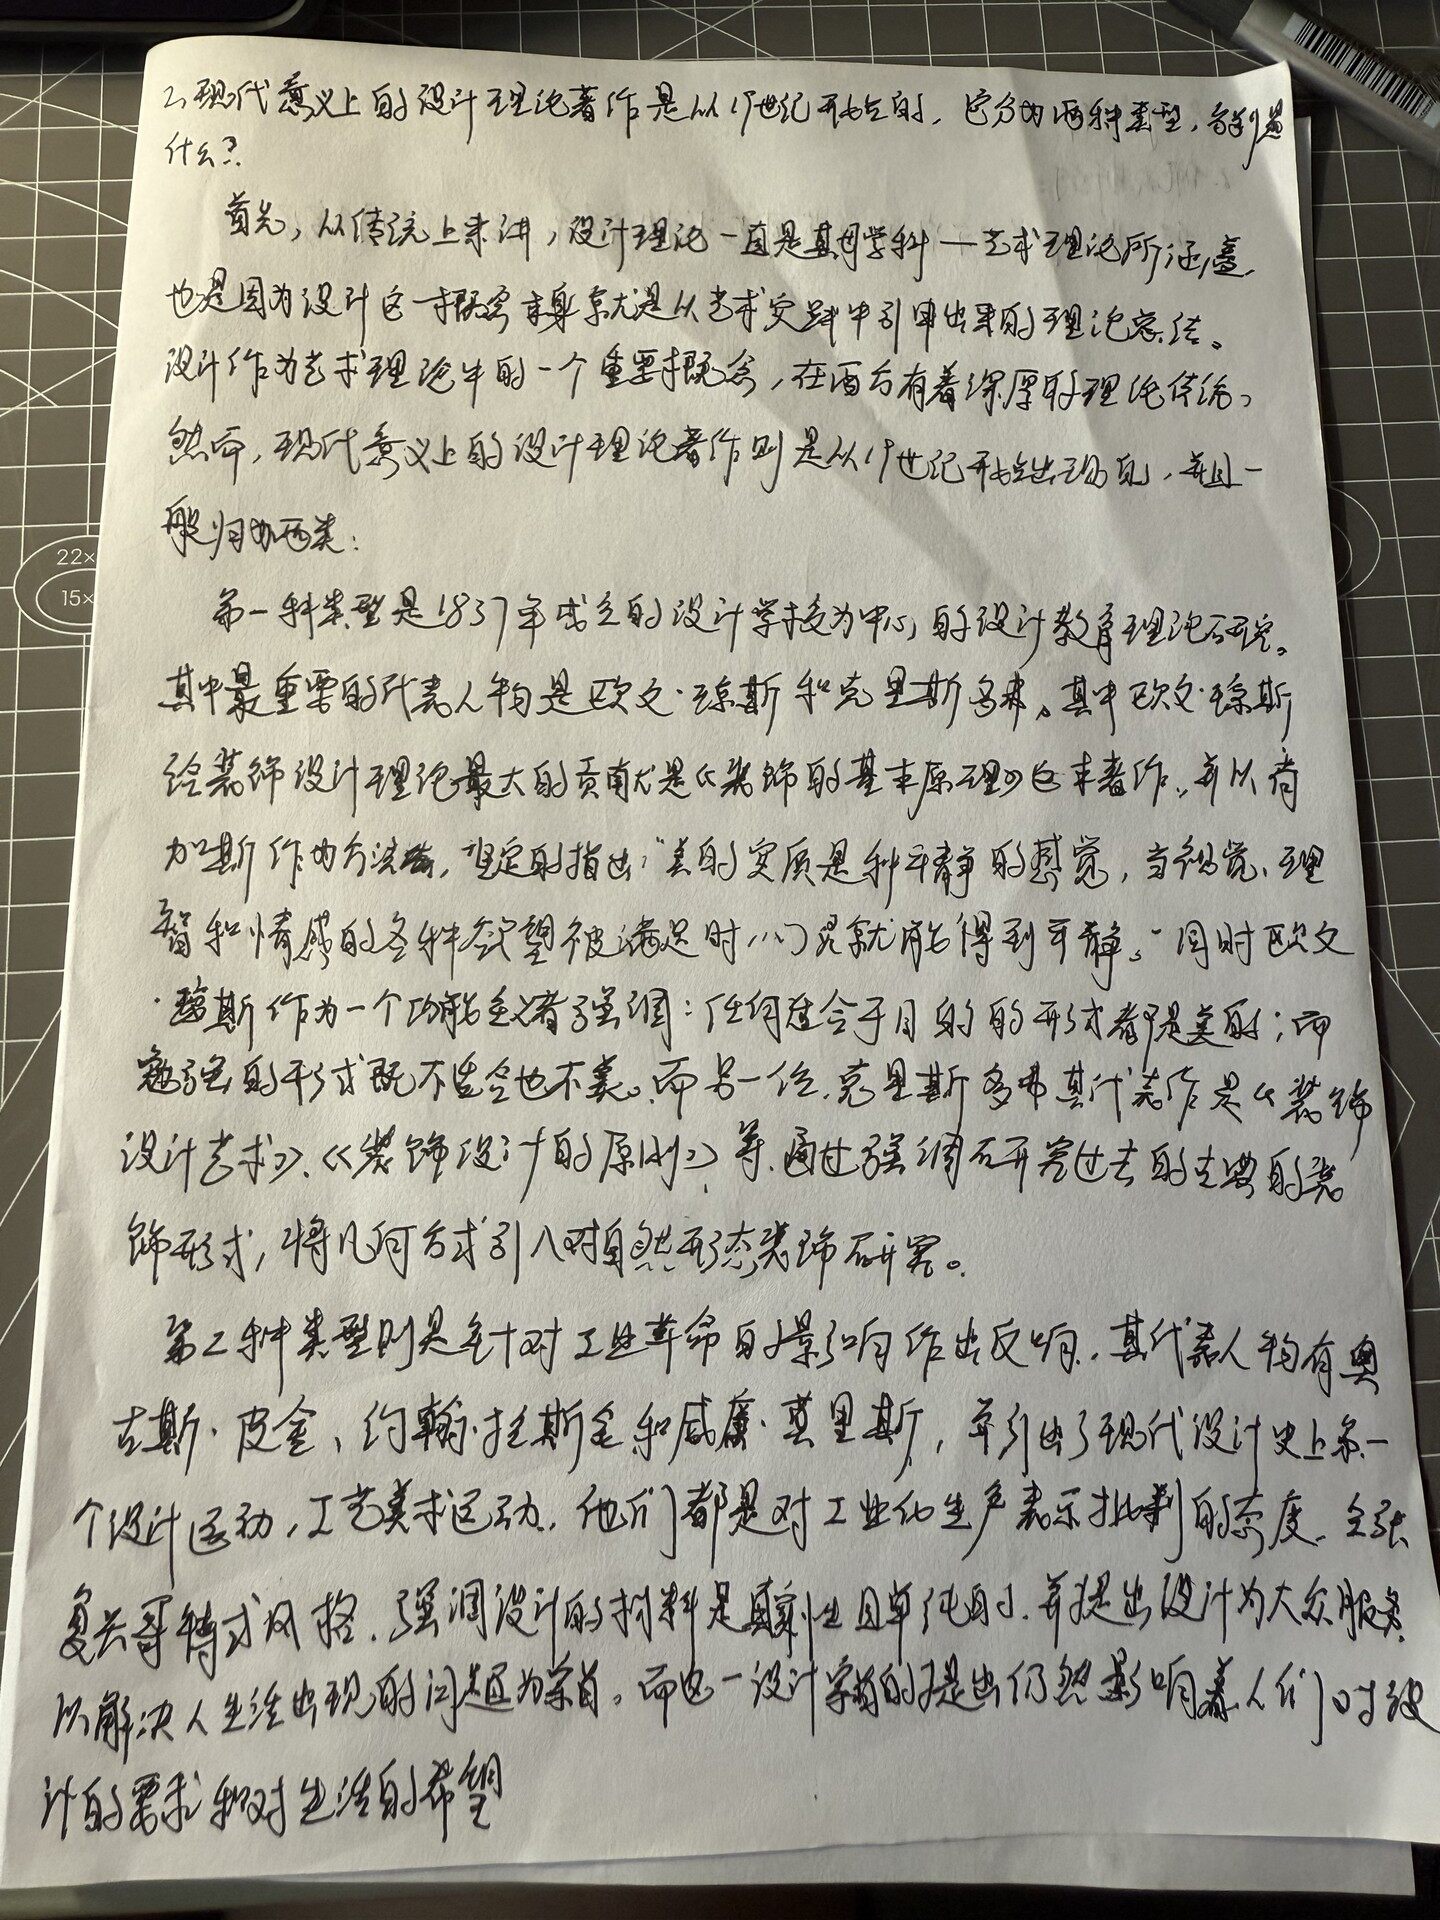 2、现代意义上的设计理论著作是从19世纪开始的,它分为两种类型,分别是
什么?
首先,从传统上来讲,设计理论一直是其母学科—艺术理论所涵盖,
也是因为设计这一概念本身就是从艺术实践中引申出来的理论总结。
设计作为艺术理论中的一个重要概念,在西方有着深厚的理论传统。
然而,现代意义上的设计理论著作则是从19世纪开始出现的,并且一
般归为两类:
第一种类型是1837年成立的设计学校为中心的设计教育理论研究。
其中最重要的代表人物是欧文·琼斯和克里斯多弗。其中欧文·琼斯
给装饰设计理论最大的贡献就是《装饰的基本原理》这本著作,并以
加斯作为方法,坚定的指出“美的实质是种平静的感觉,当视觉、理
智和情感的各种欲望被满足时,心灵就能得到平静。”同时欧文
·琼斯作为一个功能主义者强调:任何适合于目的的形式都是美的;而
勉强的形式既不适合也不美。而另一位,克里斯多弗其代表作是《装饰
设计艺术》、《装饰设计的原则》等,通过强调研究过去的古典的装
饰形式,将几何方式引入对自然形态装饰研究。
第二种类型则是针对工业革命的影响作出反响,其代表人物有奥
古斯·皮金、约翰·拉斯金和威廉·莫里斯,并引出了现代设计史上第一
个设计运动,工艺美术运动,他们都是对工业化生产表示批判的态度,主张
复兴哥特式风格,强调设计的材料是真实性且单纯的,并提出设计为大众服务,
以解决人生活出现的问题为宗旨。而这一设计宗旨的提出仍然影响着人们对设
计的要求和对生活的希望
22×
15×